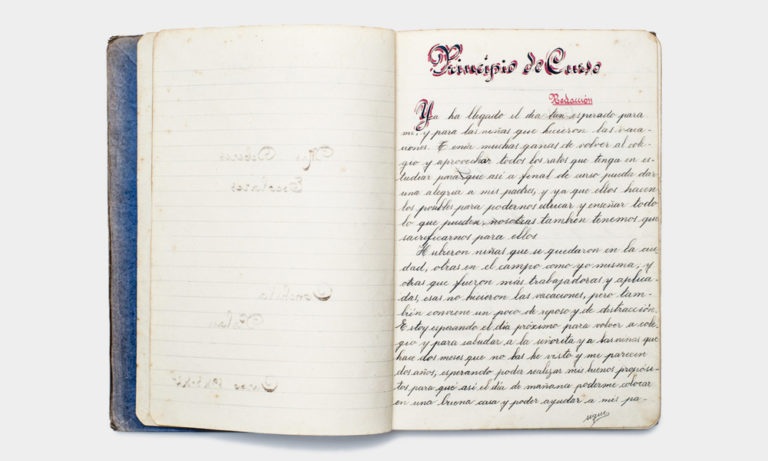 Principio de Curso
Redacción
Ya ha llegado el día tan esperado para
mi, y para las niñas que hicieron las vaca-
ciones. Tenía muchas ganas de volver al cole-
gio y aprovechar todos los ratos que tenga en es-
tudiar para que así a final de curso pueda dar
una alegria a mis padres, y ya que ellos hacen
los posibles para podernos educar y enseñar todo
lo que pueden, nosotras tambien tenemos que
sacrificarnos para ellos.
Hubieron niñas que se quedaron en la ciu-
dad, otras en el campo como yo misma, y
otras que fueron más trabajadoras y aplica-
das, esas no hicieron las vacaciones, pero tam-
bién conviene un poco de reposo y de distracción.
Estoy esperando el día próximo para volver a cole-
gio y para saludar a la señorita y a las niñas que
hace dos meses que no las he visto y me parecen
dos años, esperando poder realizar mis buenos propósi-
tos para que así el día de mañana poderme colocar
en una buena casa y poder ayudar a mis pa-
sigue